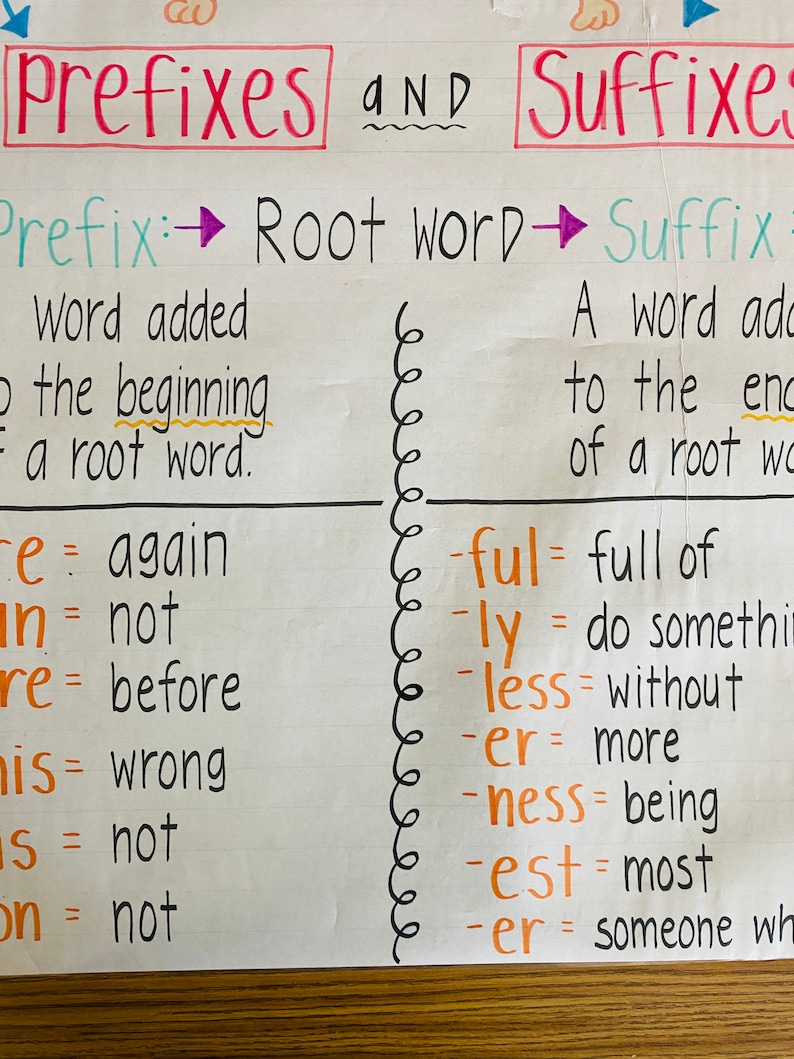 Prefixes and Suffixes
Prefix: Root word Suffix:
Word added
to the beginning
of a root word.
A word add
to the end
of a root wo
re = again
un = not
re = before
mis = wrong
is = not
on = not
-ful = full of
-ly = do somethi
-less = without
-er = more
-ness = being
-est = most
-er = someone wh